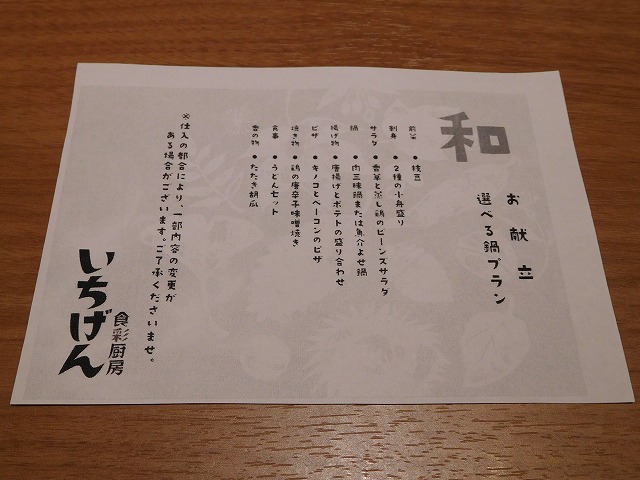 和
お献立
選べる鍋プラン
前菜 ●枝豆
刺身 ●2種の小舟盛り
サラダ ●香草と蒸し鶏のビーンズサラダ
鍋 ●肉三昧鍋または魚介よせ鍋
揚げ物 ●唐揚げとポテトの盛り合わせ
ピザ ●キノコとベーコンのピザ
焼き物 ●鶏の唐辛子味噌焼き
食事 ●うどんセット
香の物 ●たたき胡瓜
※仕入の都合により、一部内容の変更が
ある場合がございます。ご了承くださいませ。
食彩厨房
いちげん